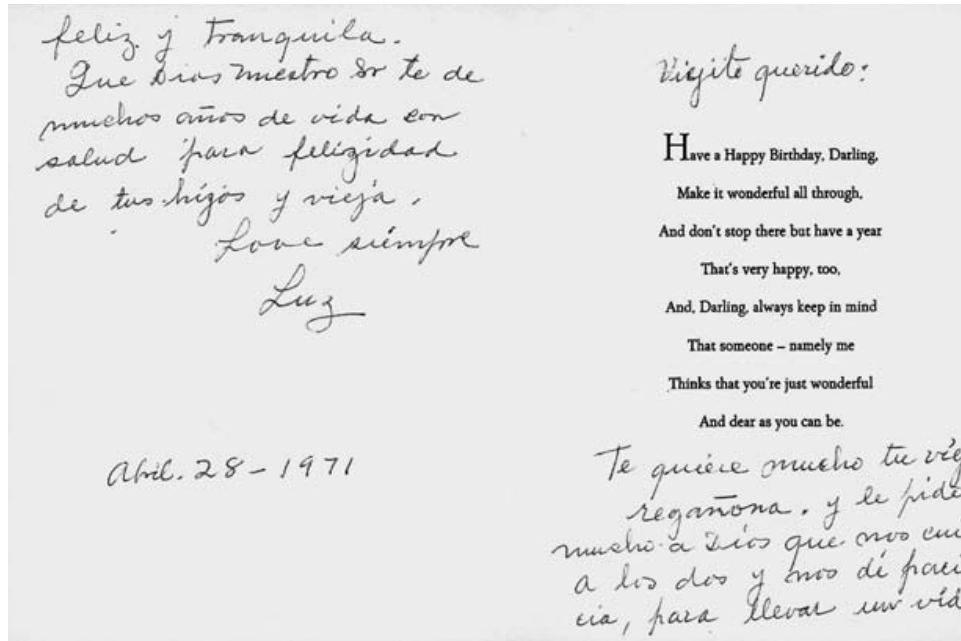 feliz y tranquila.
Que Dios nuestro Sr te de
muchos años de vida con
salud para felizidad
de tus hijos y vieja.
Love siempre
Luz
Abril. 28 - 1971
Viejito querido:
Have a Happy Birthday, Darling,
Make it wonderful all through,
And don't stop there but have a year
That's very happy, too,
And, Darling, always keep in mind
That someone – namely me
Thinks that you're just wonderful
And dear as you can be.
Te quiere mucho tu
regañona. y le pide
mucho a Dios que nos
a los dos y nos dé paci
cia, para llevar un vid